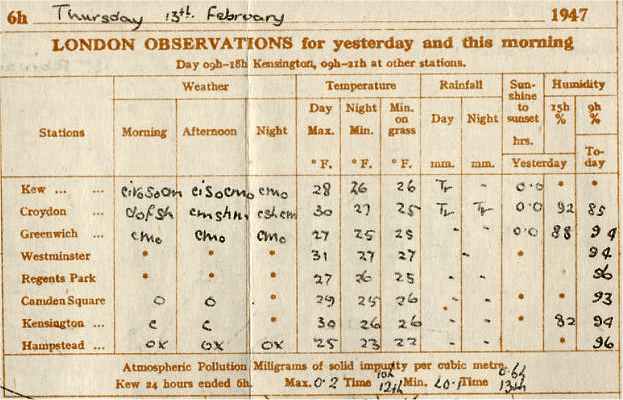 6h Thursday 13th. February 1947
LONDON OBSERVATIONS for yesterday and this morning
Day 09h-18h Kensington, 09h-21h at other stations.
Weather Temperature Rainfall Sun-shine to sunset Humidity
Stations Morning Afternoon Night Day Max. Night Min. Min. on grass Day Night hrs. 15h % 9h %
°F. °F. °F. mm. mm. Yesterday To-day
Kew ... ... cmo 28 26 26 Tr - 0.0 * *
Croydon ... 30 27 25 Tr Tr 0.0 92 85
Greenwich ... cmo cmo cmo 27 25 25 - - 0.0 88 94
Westminster * * * 31 27 27 - * * 94
Regents Park * * * 27 26 25 - - * * 96
Camden Square o o * 29 25 26 - - * * 93
Kensington ... c c * 30 26 26 - - * 82 94
Hampstead ... ox ox ox 25 23 22 - - * * 96
Atmospheric Pollution Miligrams of solid impurity per cubic metre.
Kew 24 hours ended 6h. Max. 0.2 Time 10h 12th Min. Time 13th